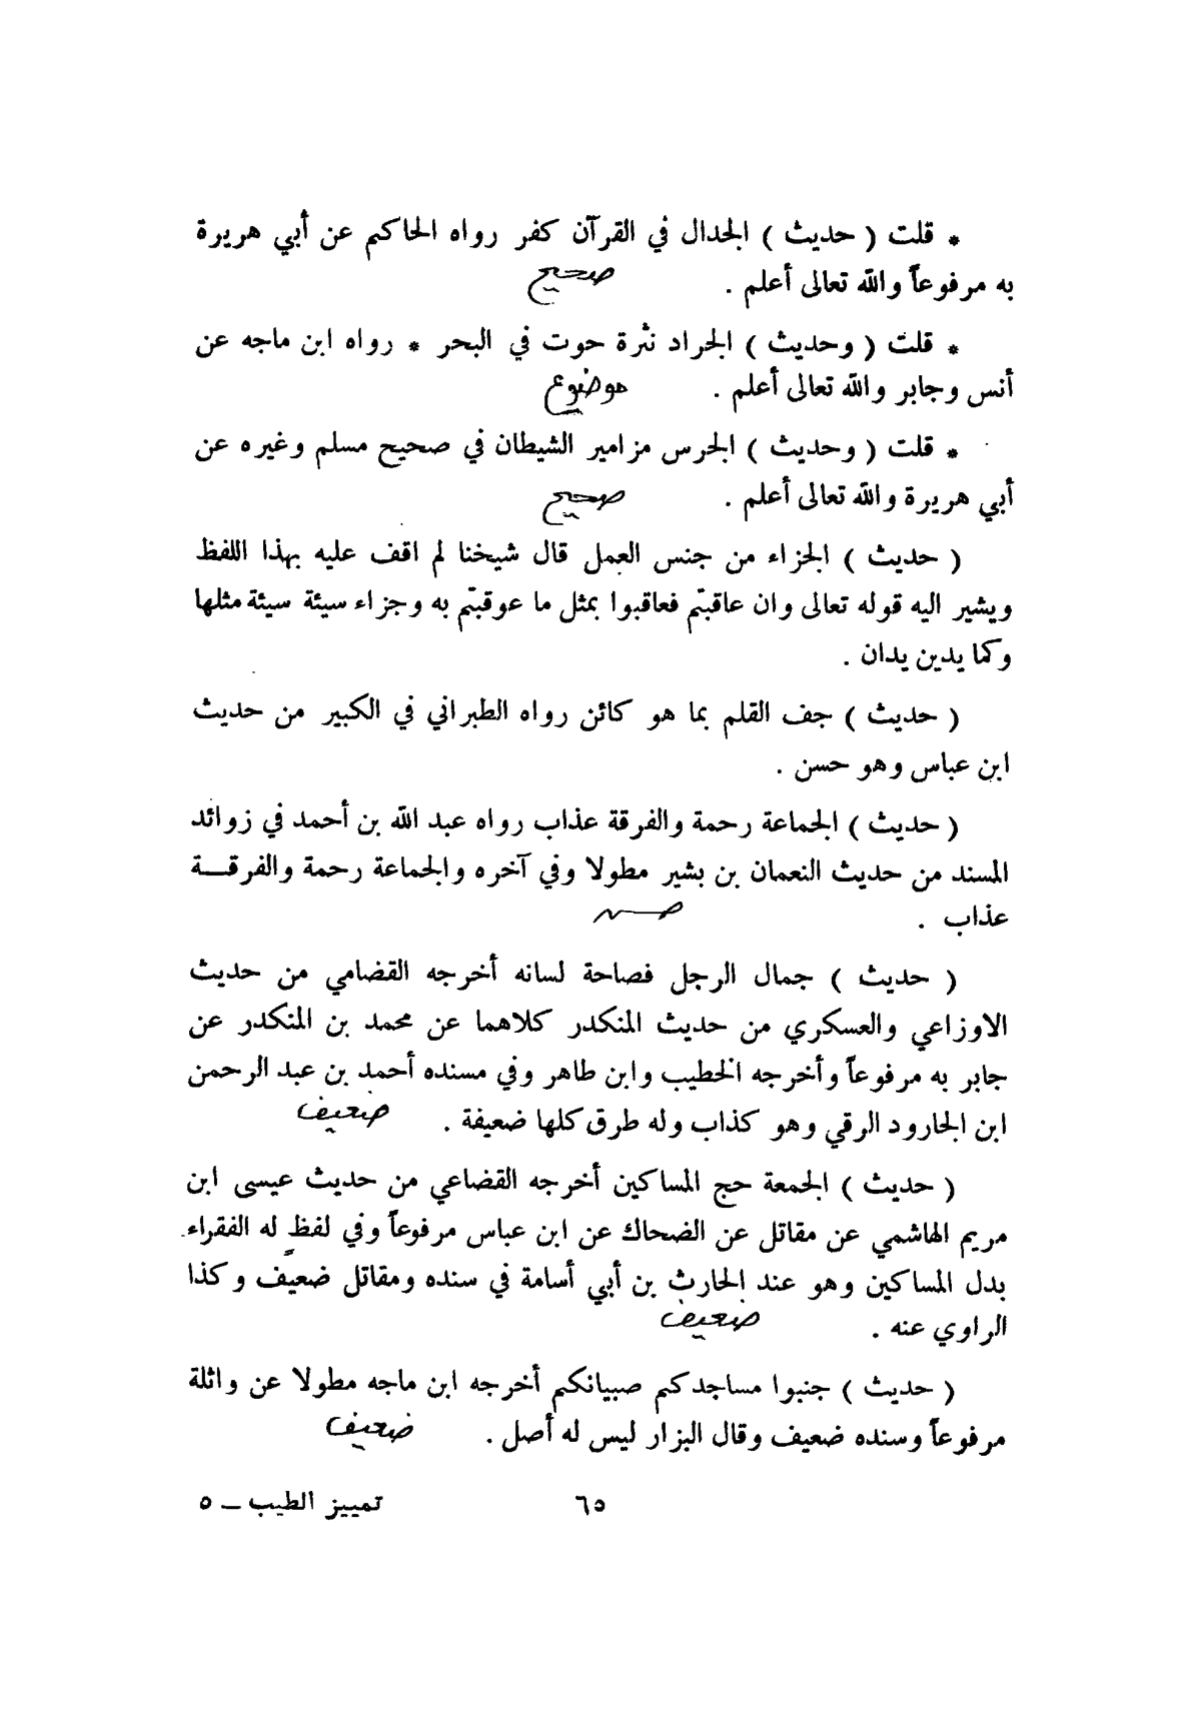 * قلت ( حديث ) الجدال في القرآن كفر رواه الحاكم عن أبي هريرة
به مرفوعاً والله تعالى أعلم . صحيح
* قلت ( وحديث ) الجراد نثرة حوت في البحر * رواه ابن ماجه عن
أنس وجابر والله تعالى أعلم . موضوع
* قلت ( وحديث ) الجرس مزامير الشيطان في صحيح مسلم وغيره عن
أبي هريرة والله تعالى أعلم . صحيح
( حديث ) الجزاء من جنس العمل قال شيخنا لم اقف عليه بهذا اللفظ
ويشير اليه قوله تعالى وان عاقبتم فعاقبوا بمثل ما عوقبتم به وجزاء سيئة سيئة مثلها
وكما يدين يدان .
( حديث ) جف القلم بما هو كائن رواه الطبراني في الكبير من حديث
ابن عباس وهو حسن .
( حديث ) الجماعة رحمة والفرقة عذاب رواه عبد الله بن أحمد في زوائد
المسند من حديث النعمان بن بشير مطولا وفي آخره والجماعة رحمة والفرقــة
عذاب .
( حديث ) جمال الرجل فصاحة لسانه أخرجه القضامي من حديث
الاوزاعي والعسكري من حديث المنكدر كلاهما عن محمد بن المنكدر عن
جابر به مرفوعاً وأخرجه الخطيب وابن طاهر وفي مسنده أحمد بن عبد الرحمن
ابن الجارود الرقي وهو كذاب وله طرق كلها ضعيفة . ضعيف
( حديث ) الجمعة حج المساكين أخرجه القضاعي من حديث عيسى ابن
مريم الهاشمي عن مقاتل عن الضحاك عن ابن عباس مرفوعاً وفي لفظٍ له الفقراء
بدل المساكين وهو عند الحارث بن أبي أسامة في سنده ومقاتل ضعيف وكذا
الراوي عنه . ضعيف
( حديث ) جنبوا مساجدكم صبيانكم أخرجه ابن ماجه مطولا عن واثلة
مرفوعاً وسنده ضعيف وقال البزار ليس له أصل . ضعيف
٦٥
تمييز الطيب ــ ٥